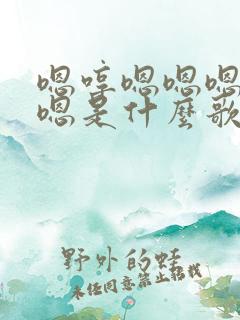 嗯哼嗯嗯嗯
嗯是什麼歌
野外的蛙
未经同意禁止搭载